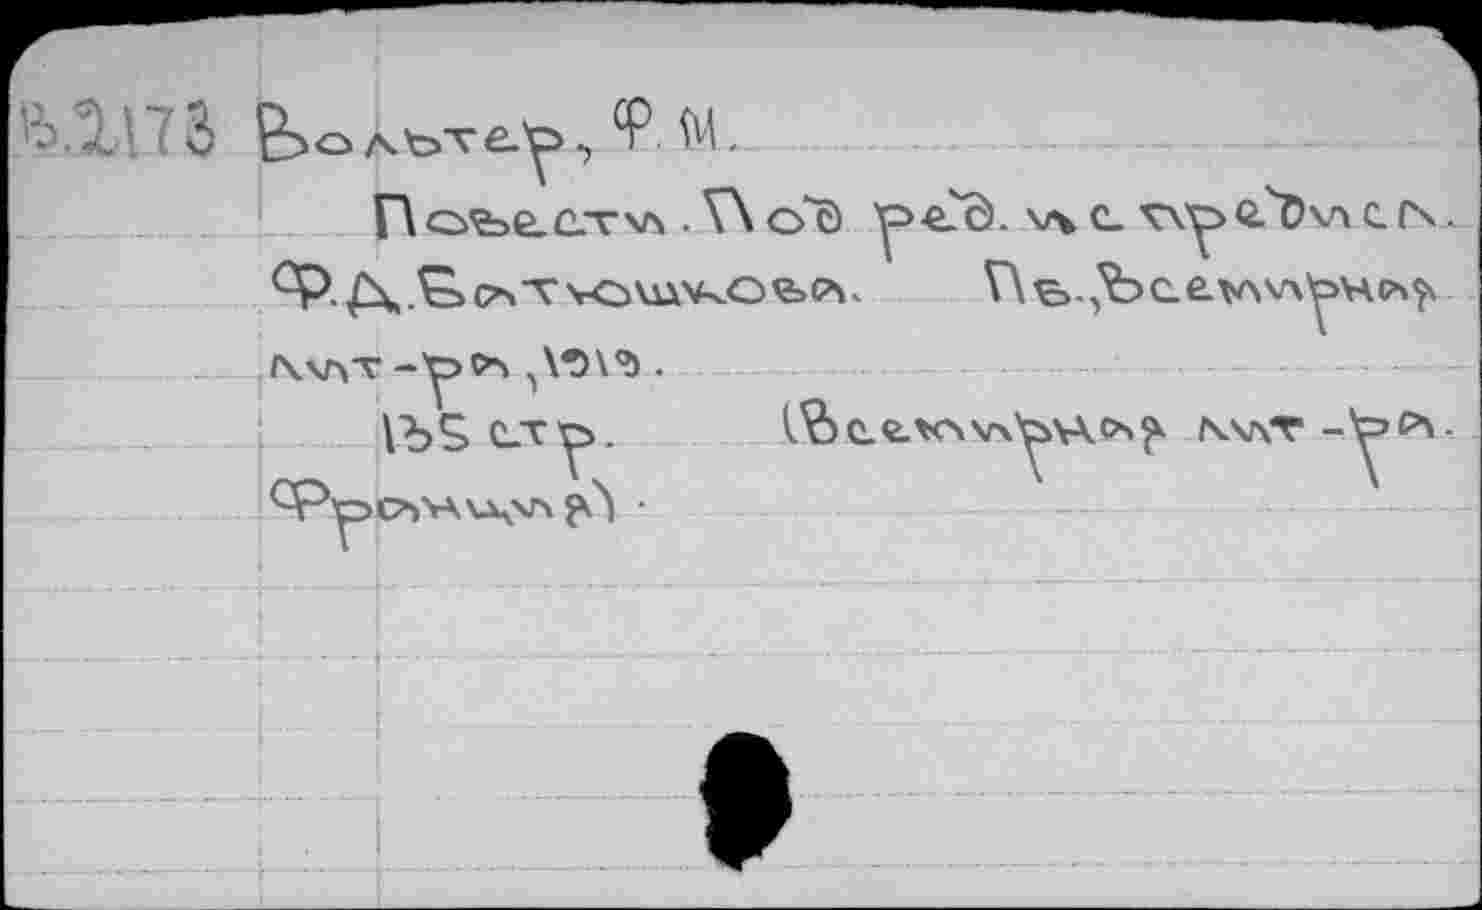 в.2173 Вольтер, Ф. М.
Повести. Под ред. и с предисл.
Ф.Д.Батюшкова. Пб.,Всемирная
лит-ра,1919.
135 стр. (Всемирная лит-ра.
Франция) .